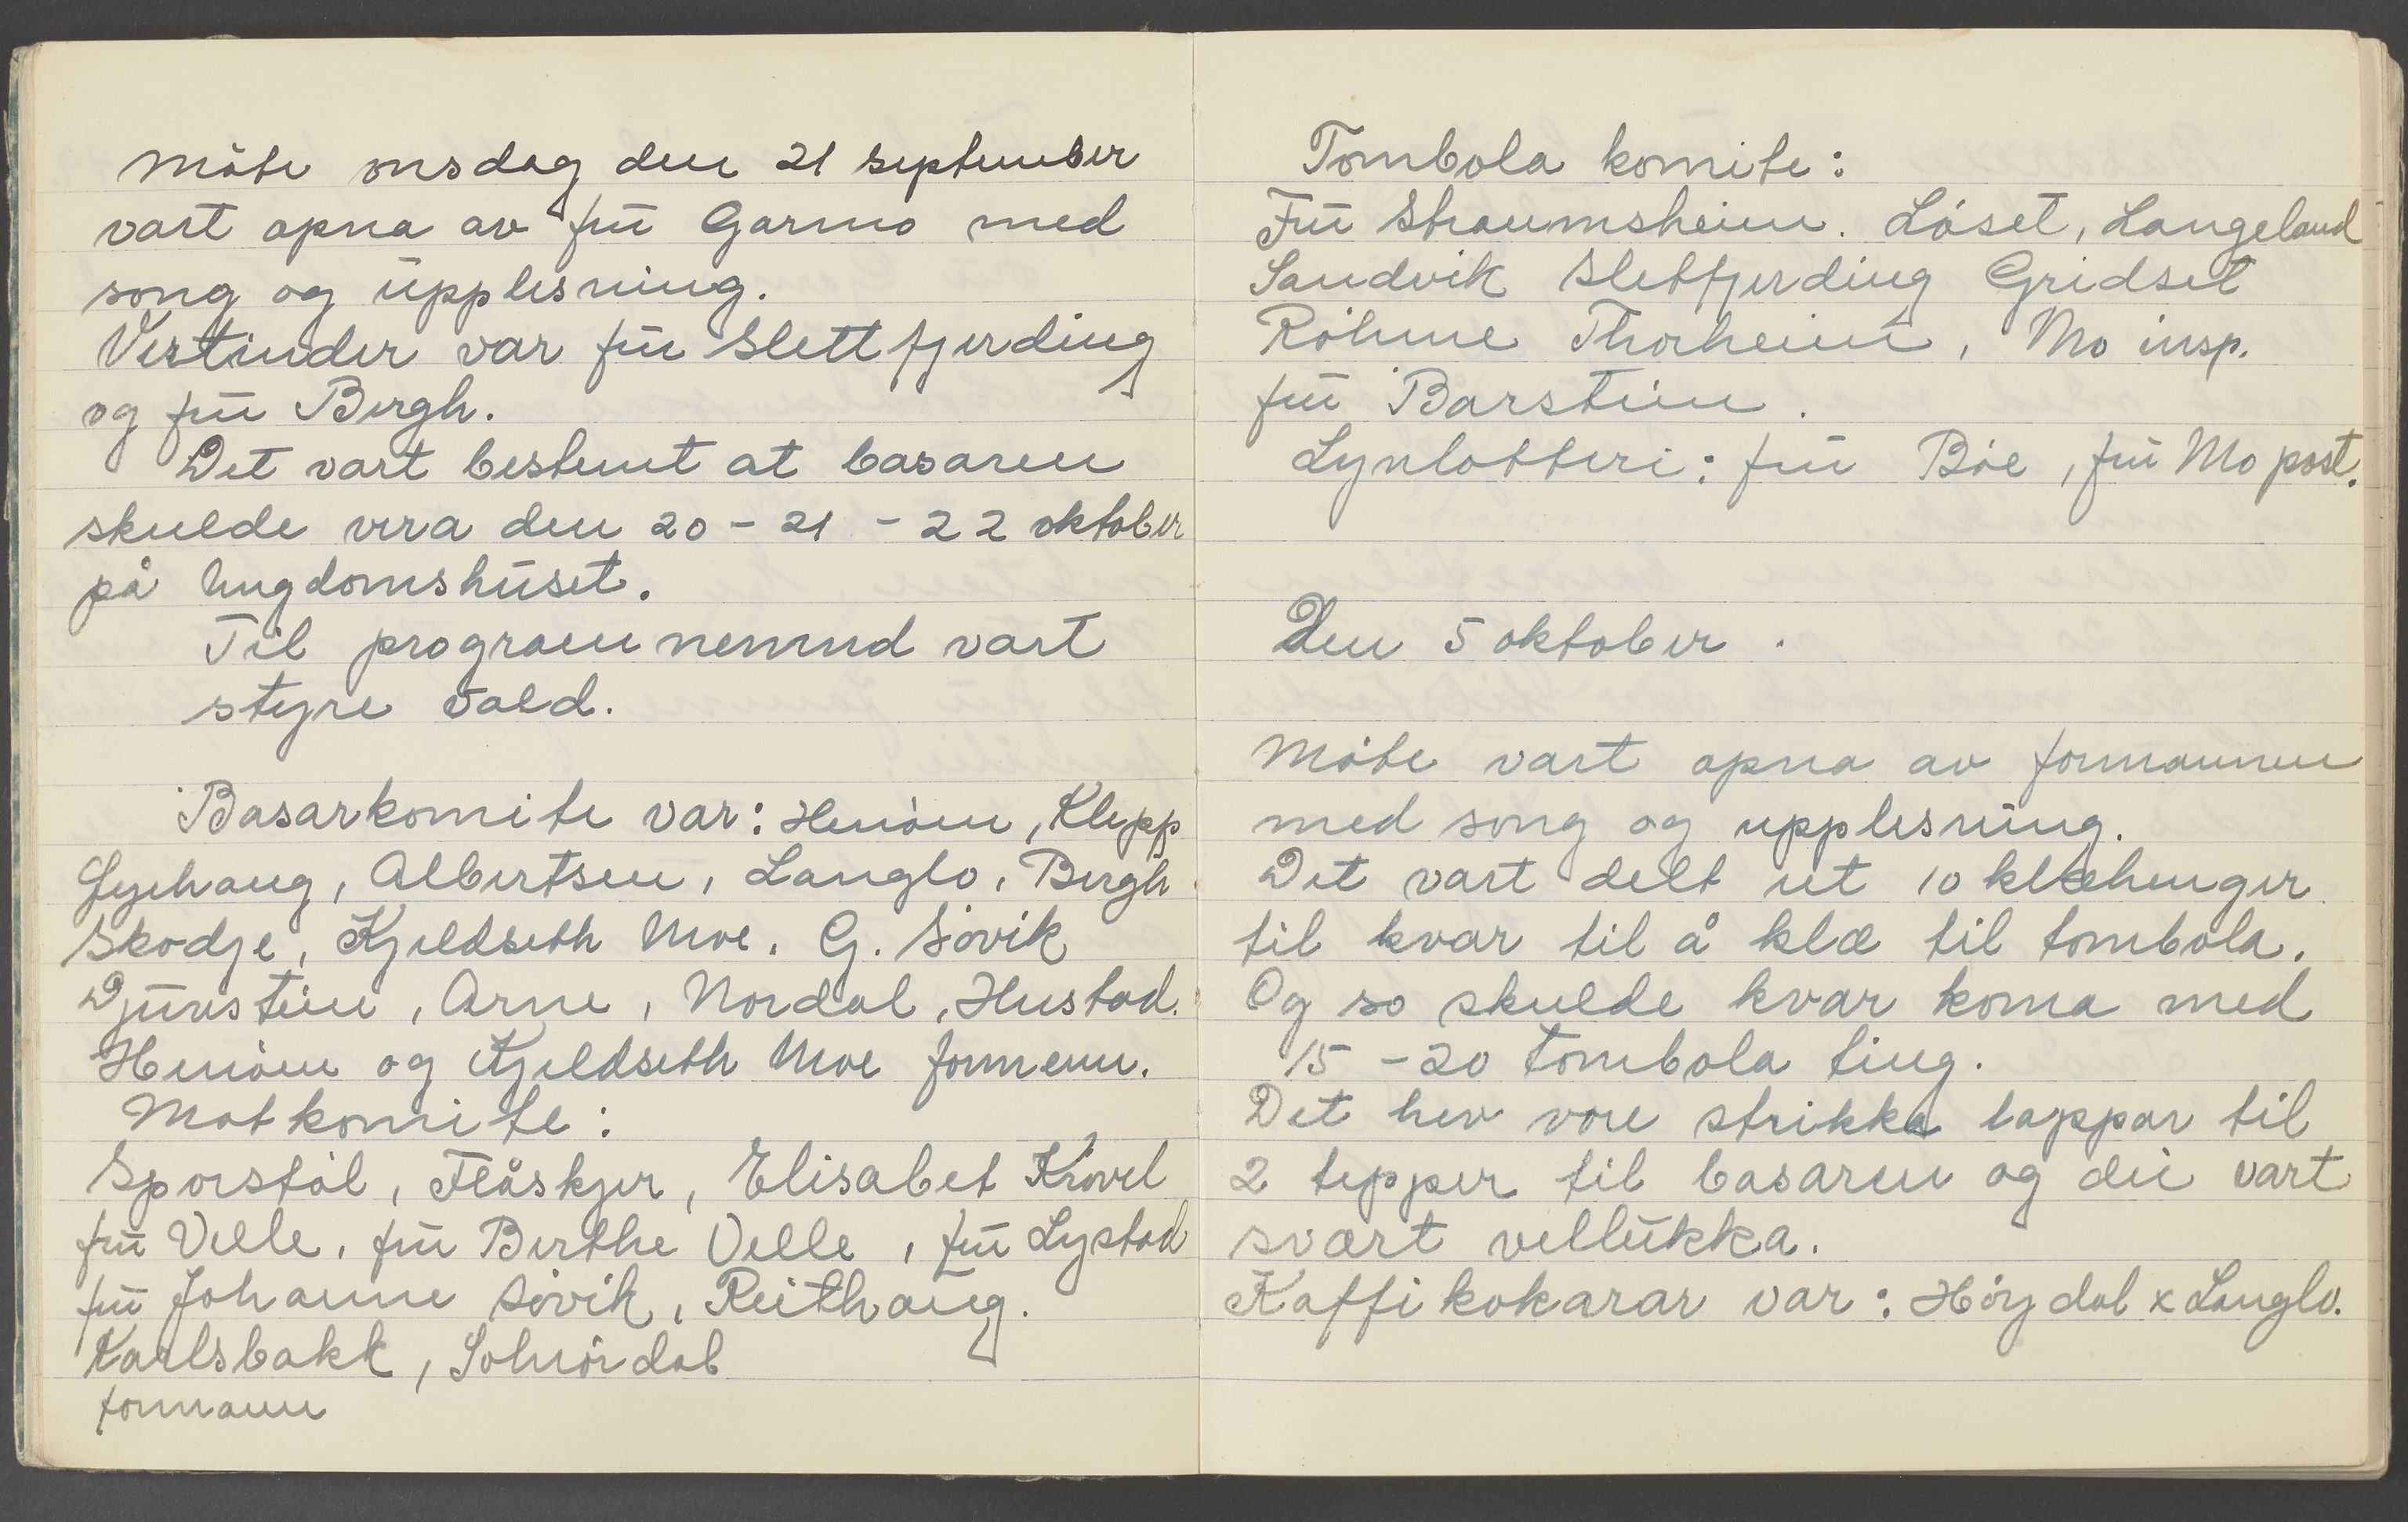 Møte onsdag den 21 september
vart opna av frū Garmo med
song og ūpplesning.
Vertinder var frū Slettfjerding
og frū Bergh.
Det vart bestemt at basaren
skulde vera den 20 - 21 - 22 oktober
på Ungdomshūset.
Til programnemnd vart
styre vald.
Basarkomite var: Henøen, Klepp
Gjehaug, Albertsen, Langlo, Bergh
Skodje, Kjeldseth Moe, G. Søvik
Djūvstein, Arne, Nordal, Hustad.
Henøen og Kjeldseth Moe formenn.
Matkomite:
Sporstøl, Flåskjer, Elisabet Krovel
frū Velle, frū Berthe Velle, frū Lystad
frū Johanne Søvik, Reithaūg.
Karlsbakk, Solnørdal
formann
Tombola komite:
Frū Straumsheim. Løset, Langeland
Sandvik Sletfjerding Gridset
Røhme Thorheim, Mo insp.
frū Barstein.
Lynlotteri: frū Bøe, frū Mo post.
Den 5 oktober.
Møte vart opna av formannen
med song og upplesning.
Det vart delt ut 10 klehenger
til kvar til å klæ til tombola.
Og so skulde kvar koma med
15 - 20 tombola ting.
Det hev vore strikka lappar til
2 tepper til basaren og dei vart
svært vellūkka.
Kaffikokarar var: Høydal x Langlo.